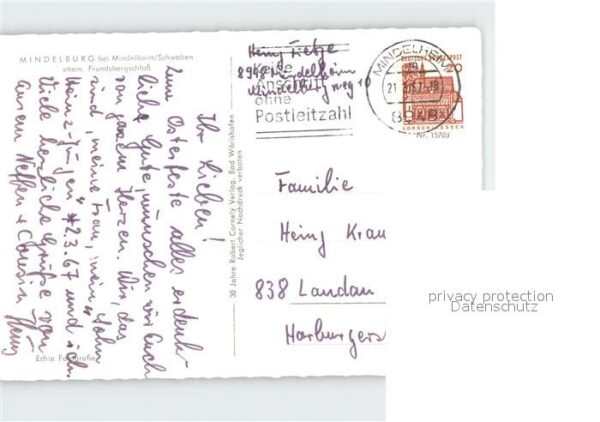 MINDELBURG bei Mindelheim/Schwaben
ehem. Frundsbergschloß
Ihr Lieben!
Zum Osterfeste alles erdenk-
lich Gute, wünschen wir Euch
von ganzem Herzen. Wir, das
sind, meine Frau, mein Sohn
Heinz-Jürgen *2.3.67 und ich.
Viele herzliche Grüße von
eurem Neffen + Cousin Heinz
Echte Fotografie
30 Jahre Robert Cornely Verlag, Bad Wörishofen
Jeglicher Nachdruck verboten
Heinz Tietze
8948 Mindelheim
Mindelburgweg 10
Keine
Anschrift
ohne
Postleitzahl
MINDELHEIM
8948
DEUTSCHE BUNDESPOST
20
LORSCH/HESSEN
Nr. 15703
Familie
Heinz Krau
838 Landau
Harburgers
privacy protection
Datenschutz